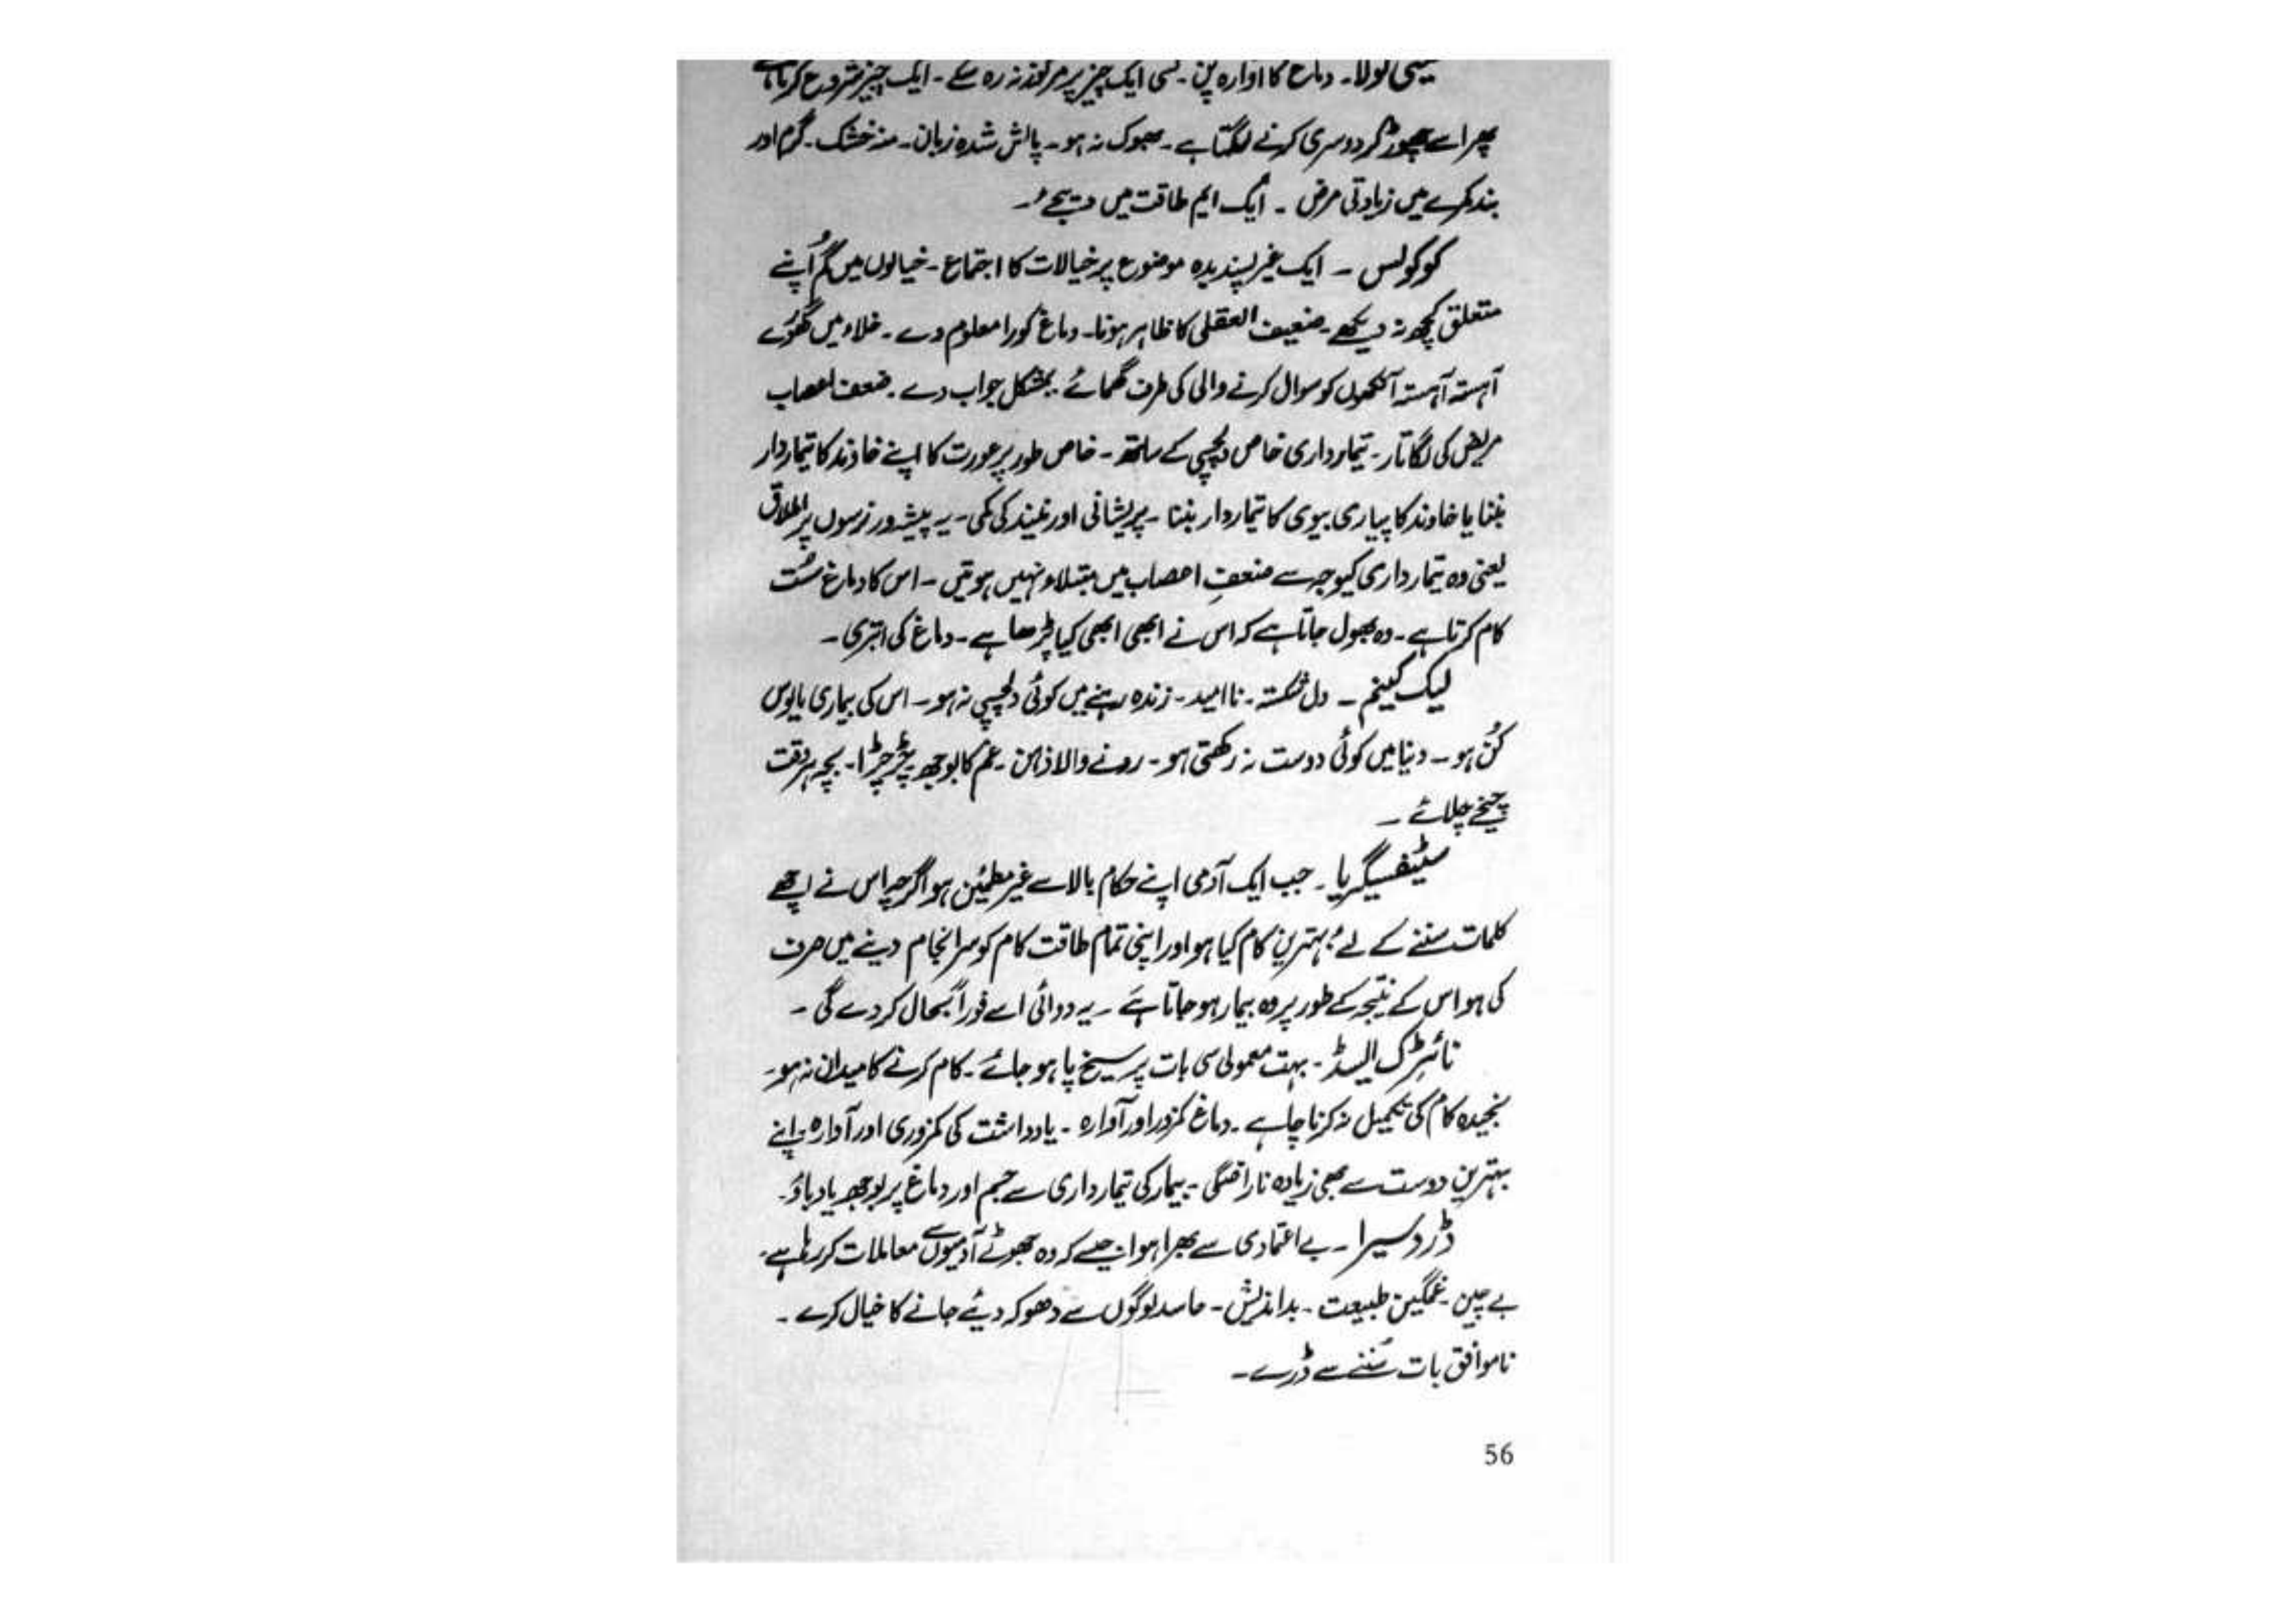 دماغ کا آوارہ پن۔ کسی ایک چیز پر مرکوز نہ رہ سکے۔ ایک چیز شروع کرتا ہے
پھر اسے چھوڑ کر دوسری کرنے لگتا ہے۔ بھوک نہ ہو۔ پالش شدہ زبان۔ منہ خشک۔ گرم اور
بند کمرے میں زیادتی مرض۔ ایک ایم طاقت میں دیجئے۔
کوکولس۔ ایک غیر پسندیدہ موضوع پر خیالات کا اجتماع۔ خیالوں میں گُم اپنے
متعلق کچھ نہ دیکھے۔ ضعیف العقلی کا ظاہر ہونا۔ دماغ کورا معلوم دے۔ خلاء میں گھورے
آہستہ آہستہ آنکھوں کو سوال کرنے والی کی طرف گھمائے۔ بمشکل جواب دے۔ ضعف اعصاب
مریض کی لگاتار۔ تیمارداری خاص دلچسپی کے ساتھ۔ خاص طور پر عورت کا اپنے خاوند کا تیماردار
بننا یا خاوند کا پیاری بیوی کا تیماردار بننا۔ پریشانی اور نیند کی کمی۔ یہ پیشہ ور نرسوں پر اطلاق
یعنی وہ تیمارداری کیوجہ سے ضعفِ اعصاب میں مبتلاء نہیں ہوتیں۔ اس کا دماغ سُست
کام کرتا ہے۔ وہ بھول جاتا ہے کہ اس نے ابھی ابھی کیا پڑھا ہے۔ دماغ کی ابتری۔
لیک کینم۔ دل شکستہ۔ ناامید۔ زندہ رہنے میں کوئی دلچسپی نہ ہو۔ اس کی بیماری مایوس
کُن ہو۔ دنیا میں کوئی دوست نہ رکھتی ہو۔ رونے والا ذہن۔ غم کا بوجھ۔ چڑچڑا۔ بچہ ہر وقت
چیخے چلائے۔
سٹیفسیگریا۔ جب ایک آدمی اپنے حکام بالا سے غیر مطمئن ہو اگرچہ اس نے اچھے
کلمات سننے کے لئے بہترین کام کیا ہو اور اپنی تمام طاقت کام کو سرانجام دینے میں صرف
کی ہو اس کے نتیجہ کے طور پر وہ بیمار ہو جاتا ہے۔ یہ دوائی اسے فوراً بحال کر دے گی۔
نائٹرک ایسڈ۔ بہت معمولی سی بات پر سیخ پا ہو جائے۔ کام کرنے کا میدان نہ ہو۔
سنجیدہ کام کی تکمیل نہ کرنا چاہے۔ دماغ کمزور اور آوارہ۔ یادداشت کی کمزوری اور آوارہ۔ اپنے
بہترین دوست سے بھی زیادہ ناراضگی۔ بیمار کی تیمارداری سے جسم اور دماغ پر بوجھ یا دباؤ۔
ڈروسیرا۔ بے اعتمادی سے بھرا ہوا جیسے کہ وہ جھوٹے آدمیوں سے معاملات کر رہا ہے۔
بے چین۔ غمگین طبیعت۔ بداندیش۔ حاسد لوگوں سے دھوکہ دیئے جانے کا خیال کرے۔
ناموافق بات سُننے سے ڈرے۔
56